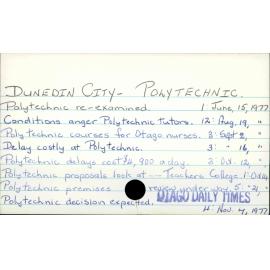 DUNEDIN CITY - POLYTECHNIC.
Polytechnic re-examined. 1: June, 15, 1977
Conditions anger Polytechnic tutors. 12: Aug, 19, "
Polytechnic courses for Otago nurses. 3: Sept 2, "
Delay costly at Polytechnic. 3: " 16, "
Polytechnic delays cost $4,900 a day. 3: Oct. 12, "
Polytechnic proposals look at -- Teachers College. 1: Oct
Polytechnic premises review under way. 5: "21, "
Polytechnic decision expected.
OTAGO DAILY TIMES
4: Nov. 4, 1977